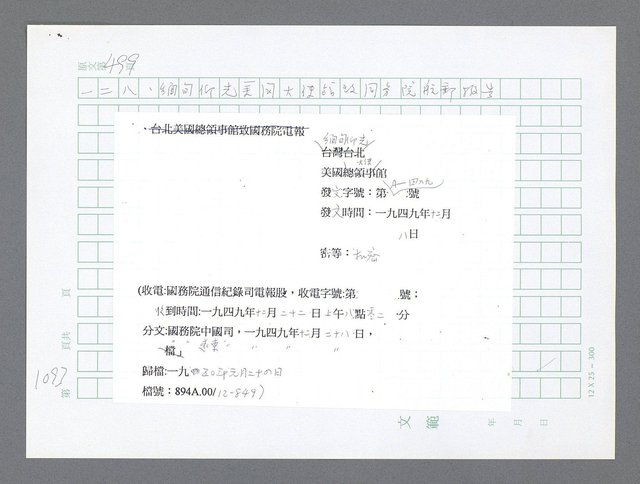 原文第499頁
一二八、緬甸仰光美國大使館致國務院航郵報告
、台北美國總領事館致國務院電報
緬甸仰光
台灣台北
大使
美國總領事館
A-四七九
發文字號：第 號
發文時間：一九四九年十二月
八日
密等：
(收電:國務院通信紀錄司電報股，收電字號:第 號；
收到時間:一九四九年十二月二十二日上午八點零二分
分文:國務院中國司，一九四九年十二月二十八日，
檔」 遠東
歸檔:一九五〇年元月二十四日
檔號：894A.00/12-849)
第1093頁共 頁
12 X 25 = 300
文範 年 月 日